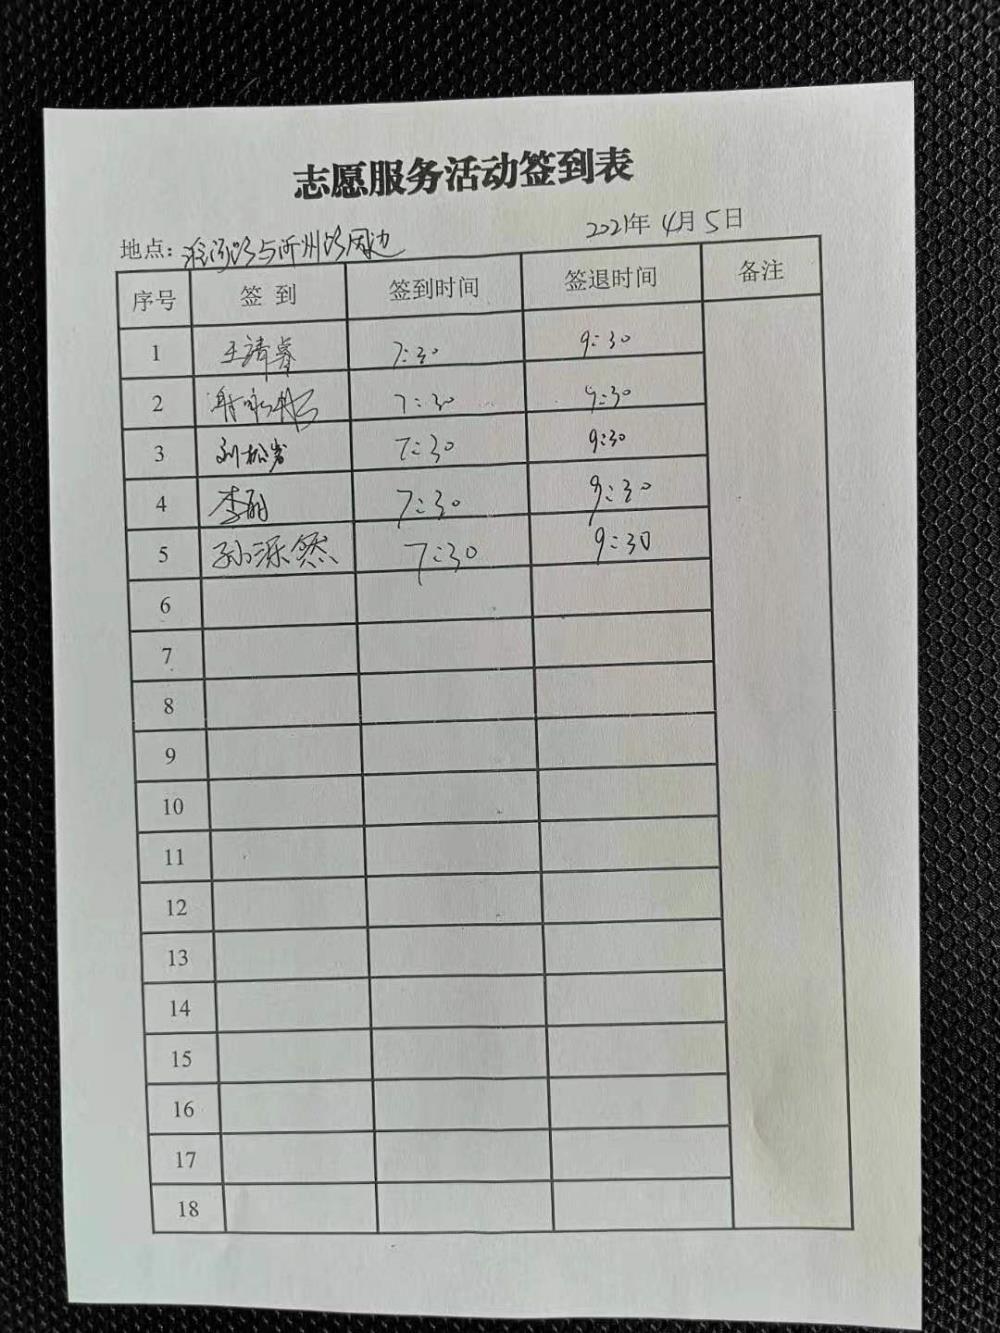 志愿服务活动签到表
地点: 淮河路与沂州路周边 2021年 4月 5日
序号 签 到 签到时间 签退时间 备注
1 王清睿 7:30 9:30
2 7:30 9:30
3 刘松岩 7:30 9:30
4 李丽 7:30 9:30
5 孙泺然 7:30 9:30
6
7
8
9
10
11
12
13
14
15
16
17
18